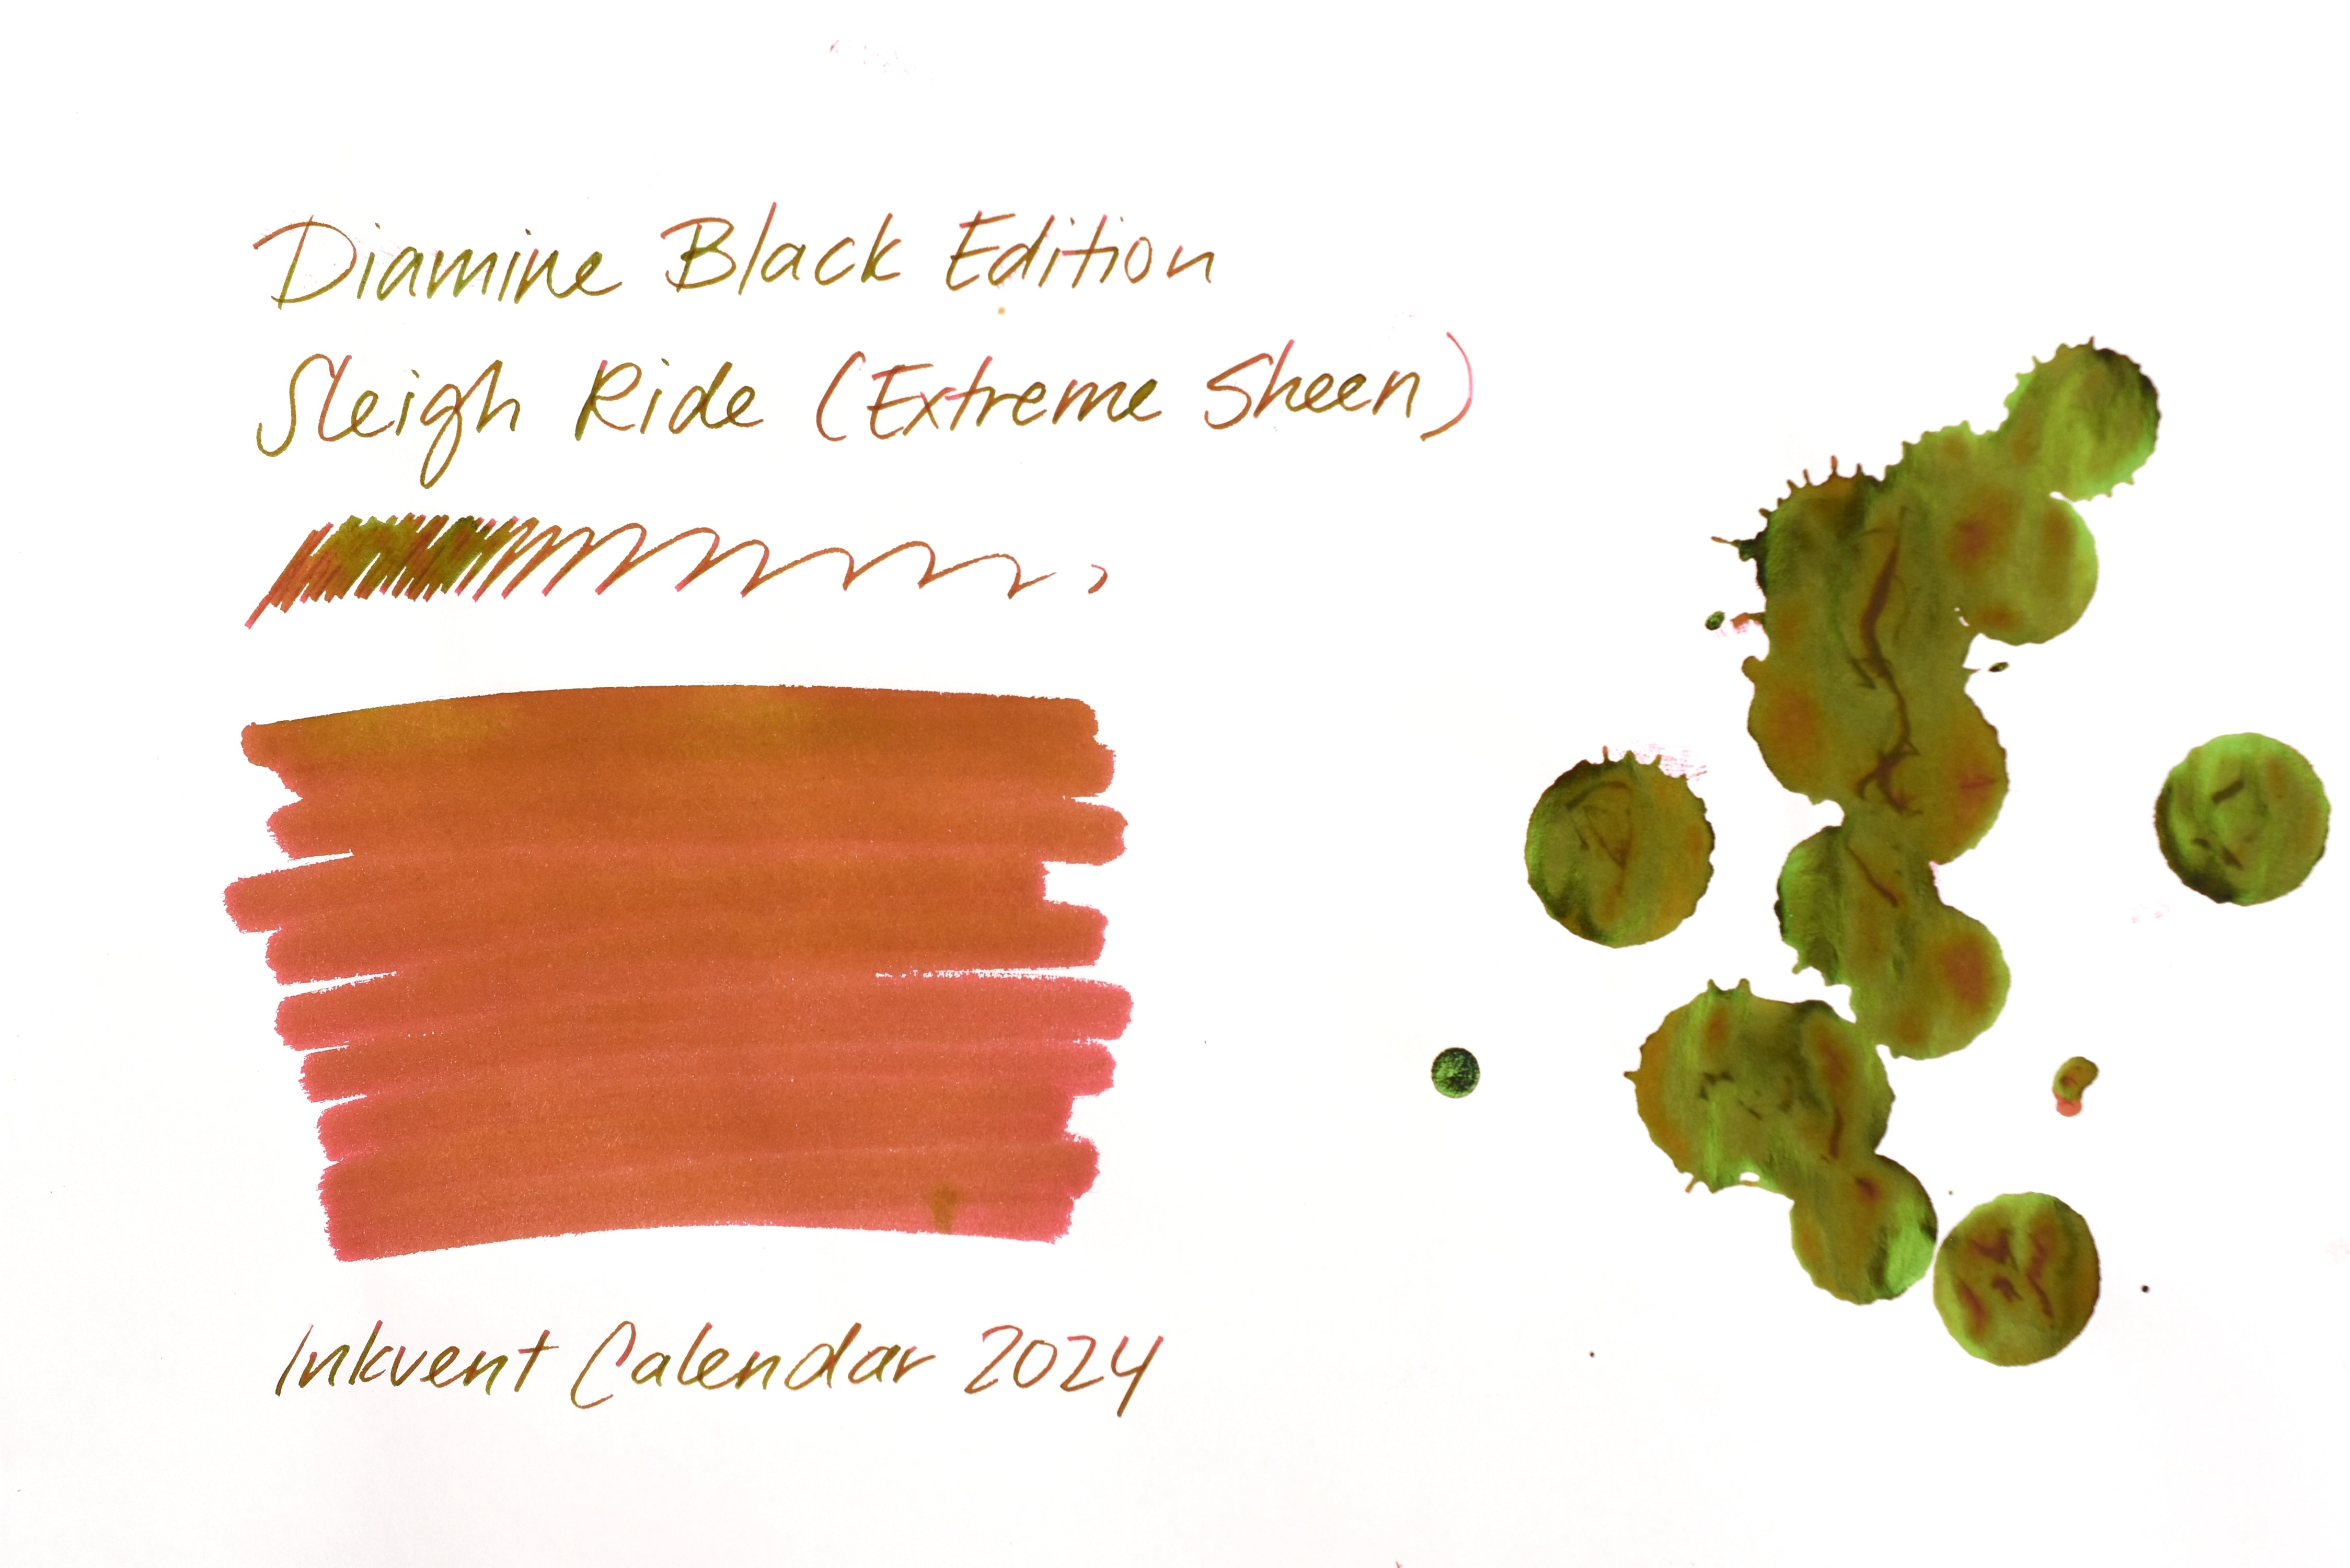 Diamine Black Edition
Sleigh Ride (Extreme Sheen)
Inkvent Calendar 2024